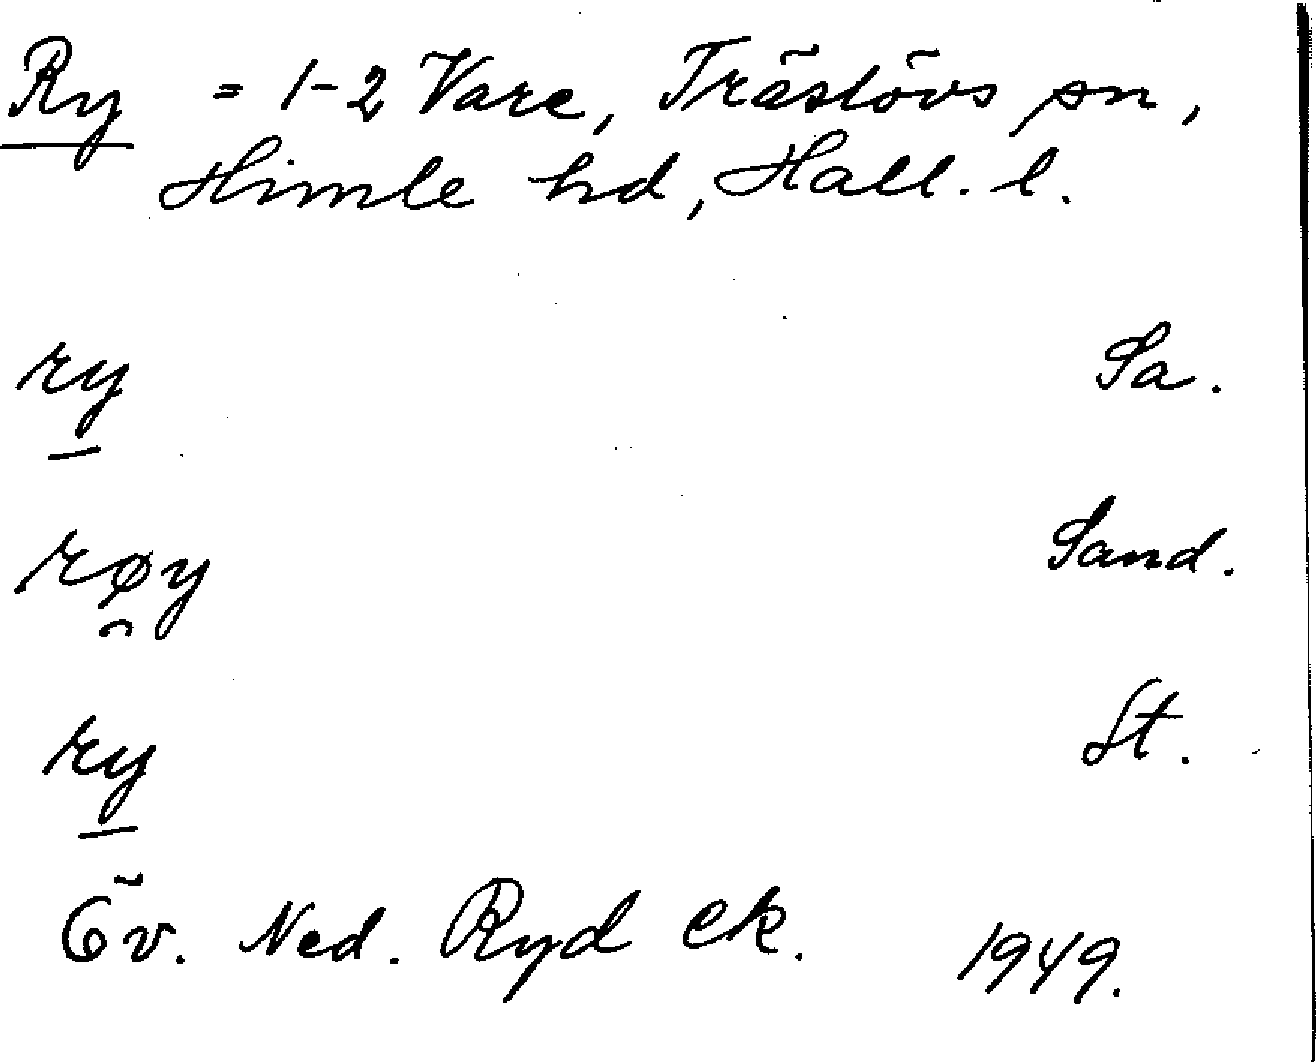 Ry = 1-2 Vare, Träslövs sn,
Himle hd, Hall. l.
ry Sa.
røy Sand.
ry St.
Öv. Ned. Ryd ek. 1949.